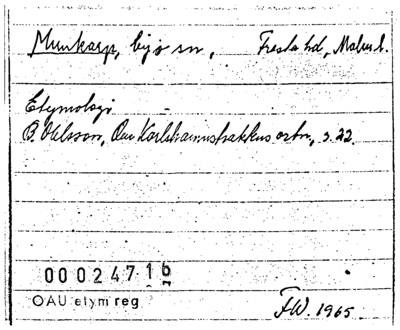 Munkarp, by i sn, Frosta hd, Malm. l.
Etymologi
B. Ohlsson, Om Karlshamnstraktens ortn., s. 22.
00024716
OAU etym reg
FW. 1965.